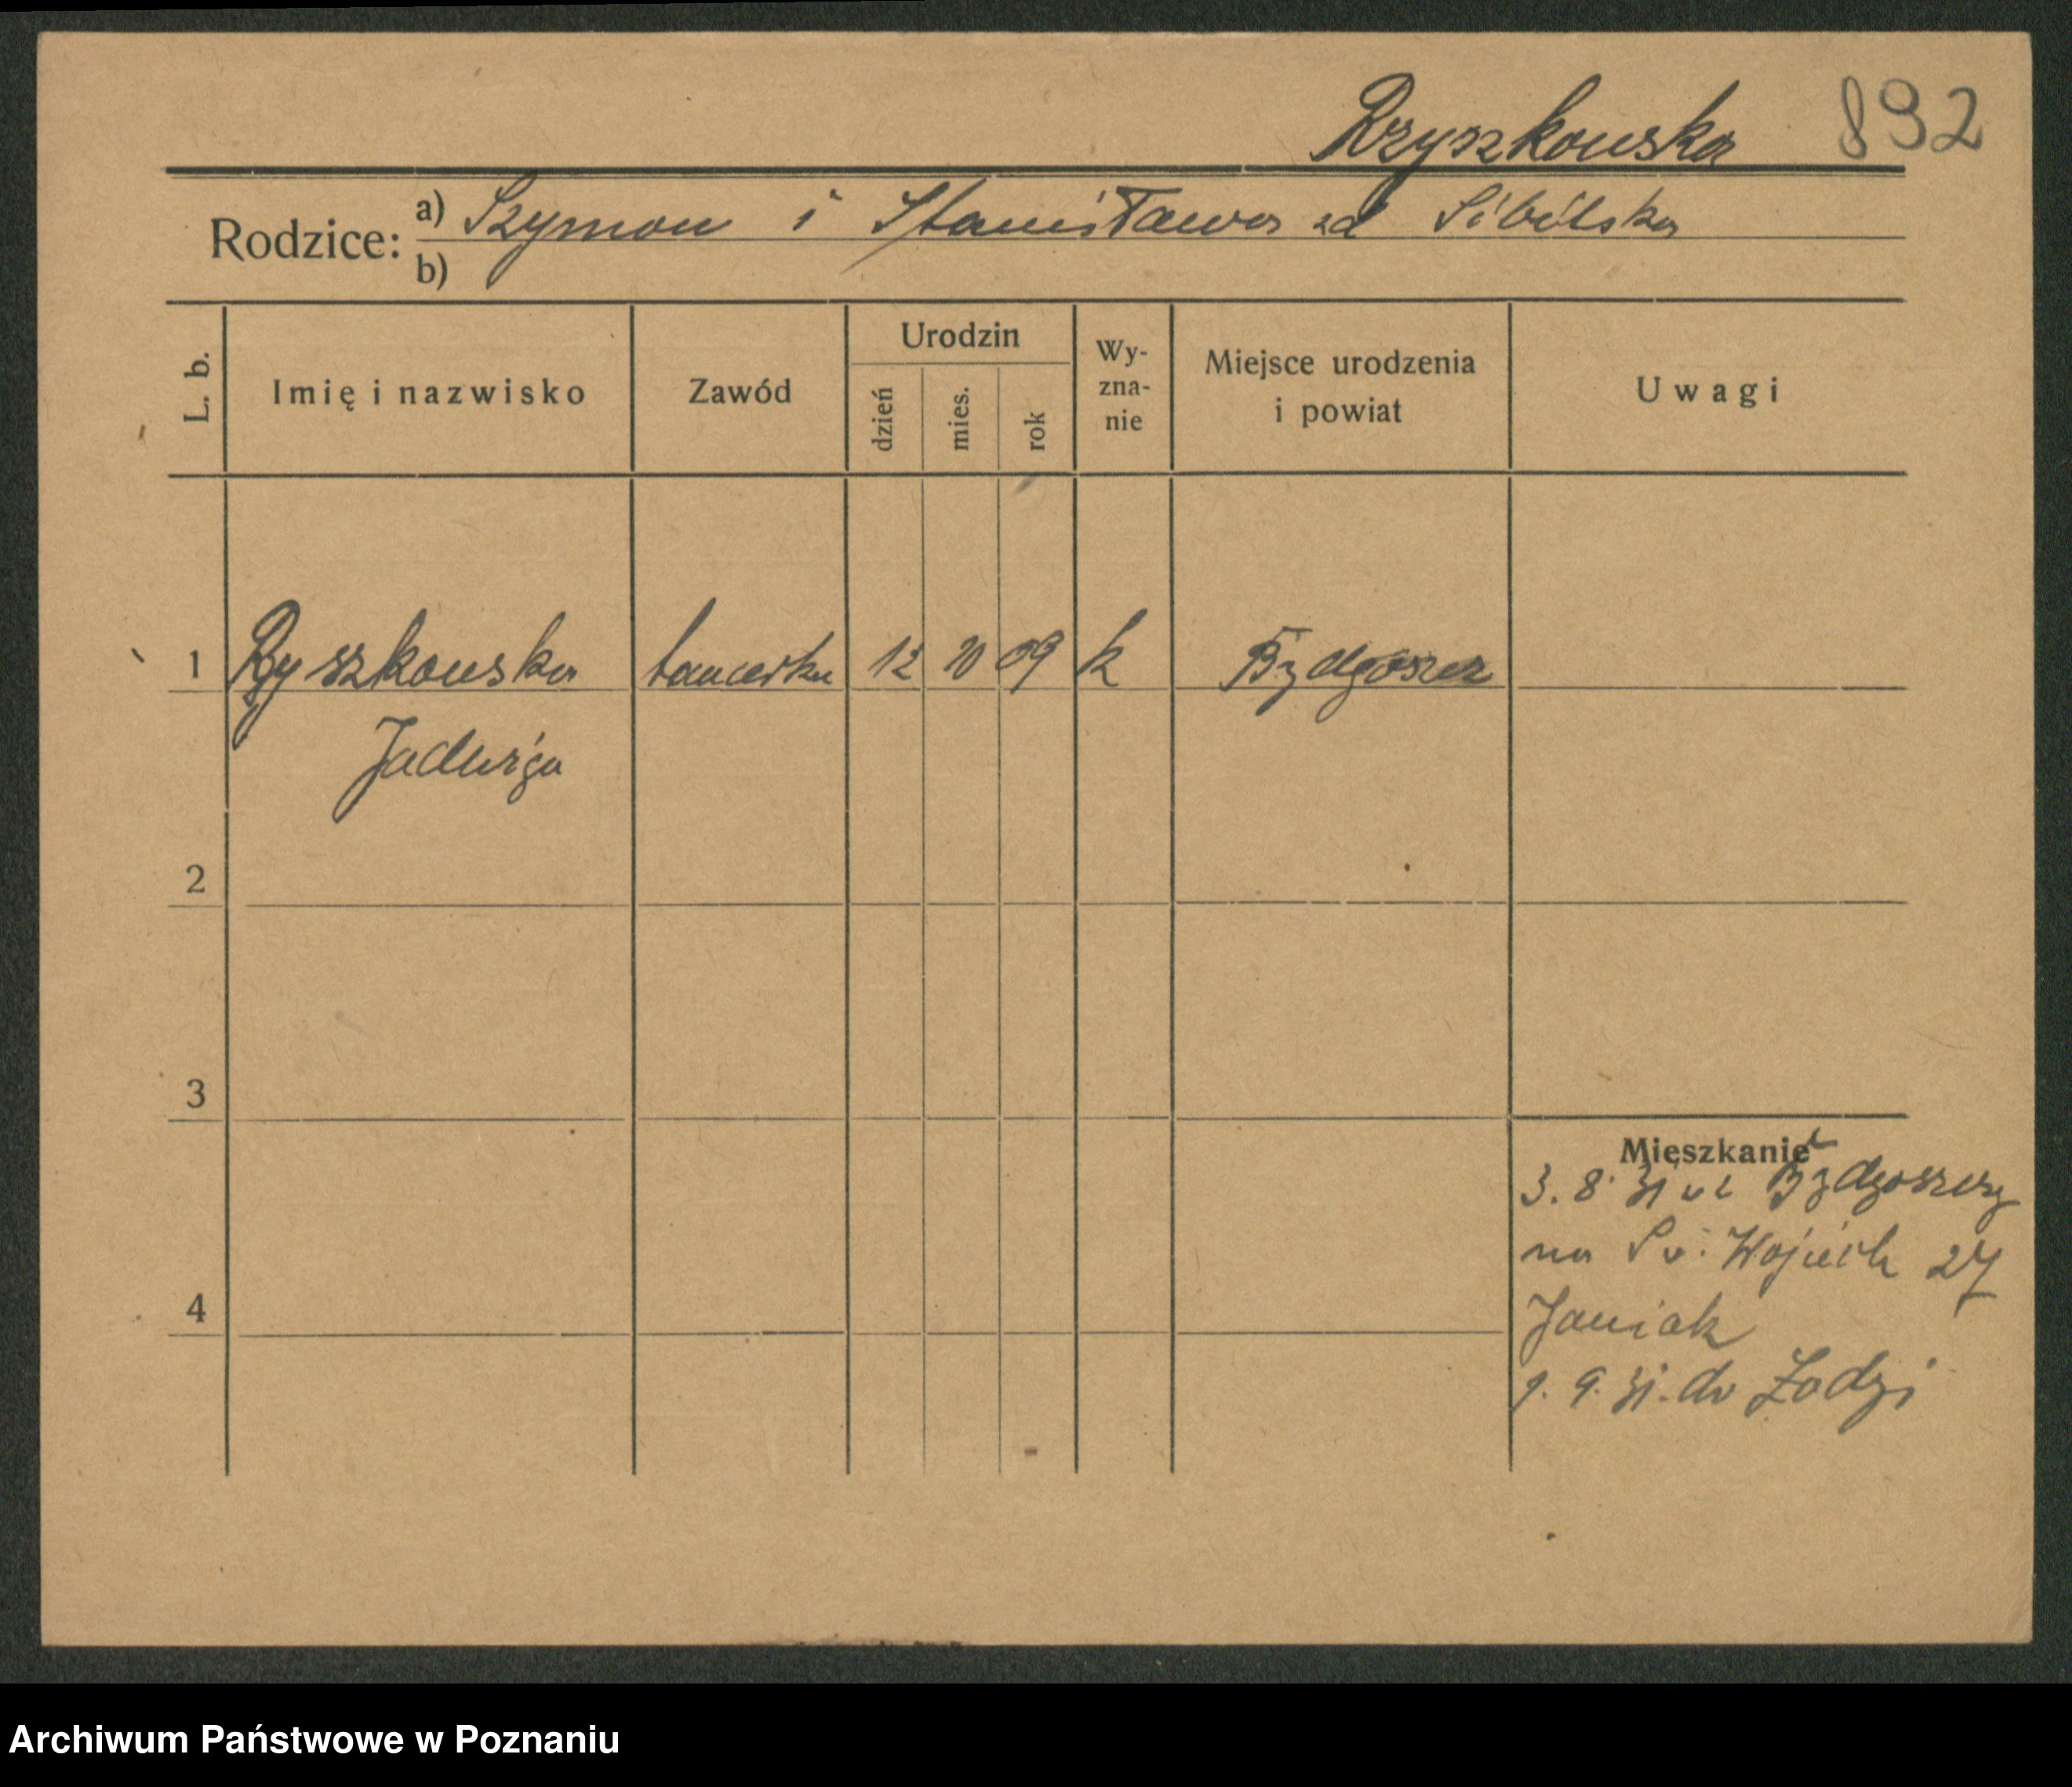 Rzyszkowska 892
Rodzice: a) Szymon i Stanisława zd Sibilska
b)
L. b.
Imię i nazwisko
Zawód
Urodzin
dzień
mies.
rok
Wy-
zna-
nie
Miejsce urodzenia
i powiat
Uwagi
1 Ryszkowska tancerka 12 10 09 k Bydgoszcz
Jadwiga
2
3
4
Mieszkanie
3. 8. 31 z Bydgoszczy
na Św. Wojciech 27
Janiak
1. 9. 31. do Łodzi
Archiwum Państwowe w Poznaniu